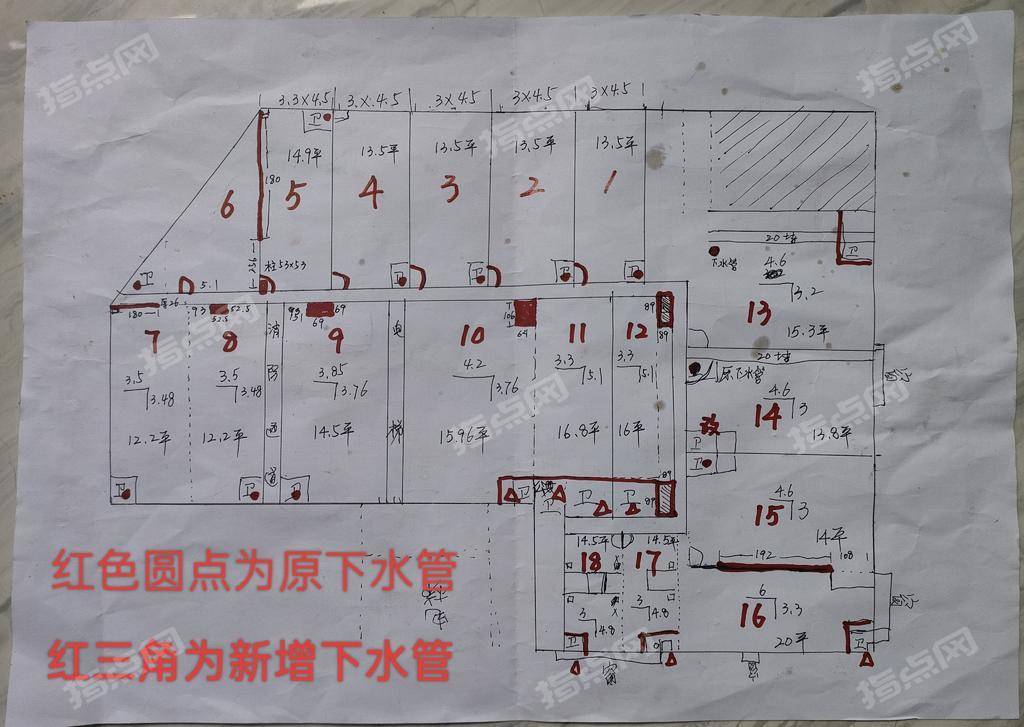 3.3×4.5 3×4.5 3×4.5 3×4.5 3×4.5
卫
14.9平 13.5平 13.5平 13.5平 13.5平
180
6 5 4 3 2 1
柱53×53
卫 5.1 卫 卫 卫 卫
20墙 卫
下水管 4.6
3.2
13
15.3平
180 93 52.5 52.5 93 151 69 69 106 64 89 89
7 8 消防通道 9 电梯 10 11 12
3.5 3.48
3.5 3.48
3.85 3.76
4.2 3.76
3.3 5.1
3.3 5.1
12.2平 12.2平 14.5平 15.96平 16.8平 16平
20墙
原下水管
4.6 3
14
13.8平
改
卫
卫
卫 卫 卫 卫 卫 卫 卫 89 89
4.6 3
15
14平
192 108
14.5平 14.5平
18 17
3 4.8
3 4.8
6 3.3
16
20平
卫 卫
窗
红色圆点为原下水管
红三角为新增下水管
指点网
指点网
指点网
指点网
指点网
指点网
指点网
指点网
指点网